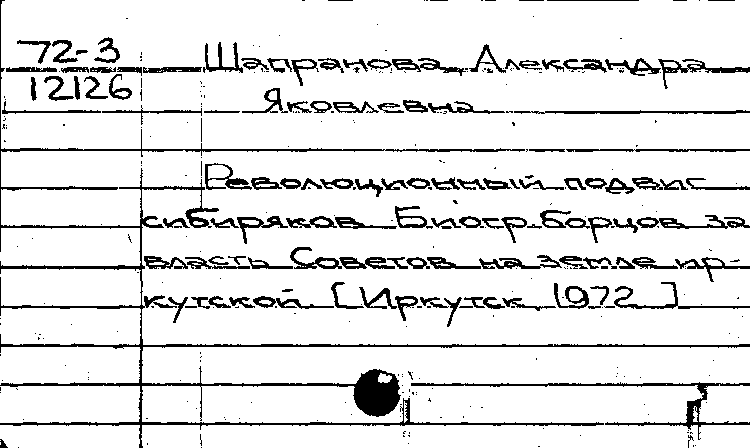 72-3
12126
Шапранова Александра
Яковлевна
Революционный подвиг
сибиряков. Биогр. борцов за
власть Советов на земле ир-
кутской. [Иркутск, 1972]